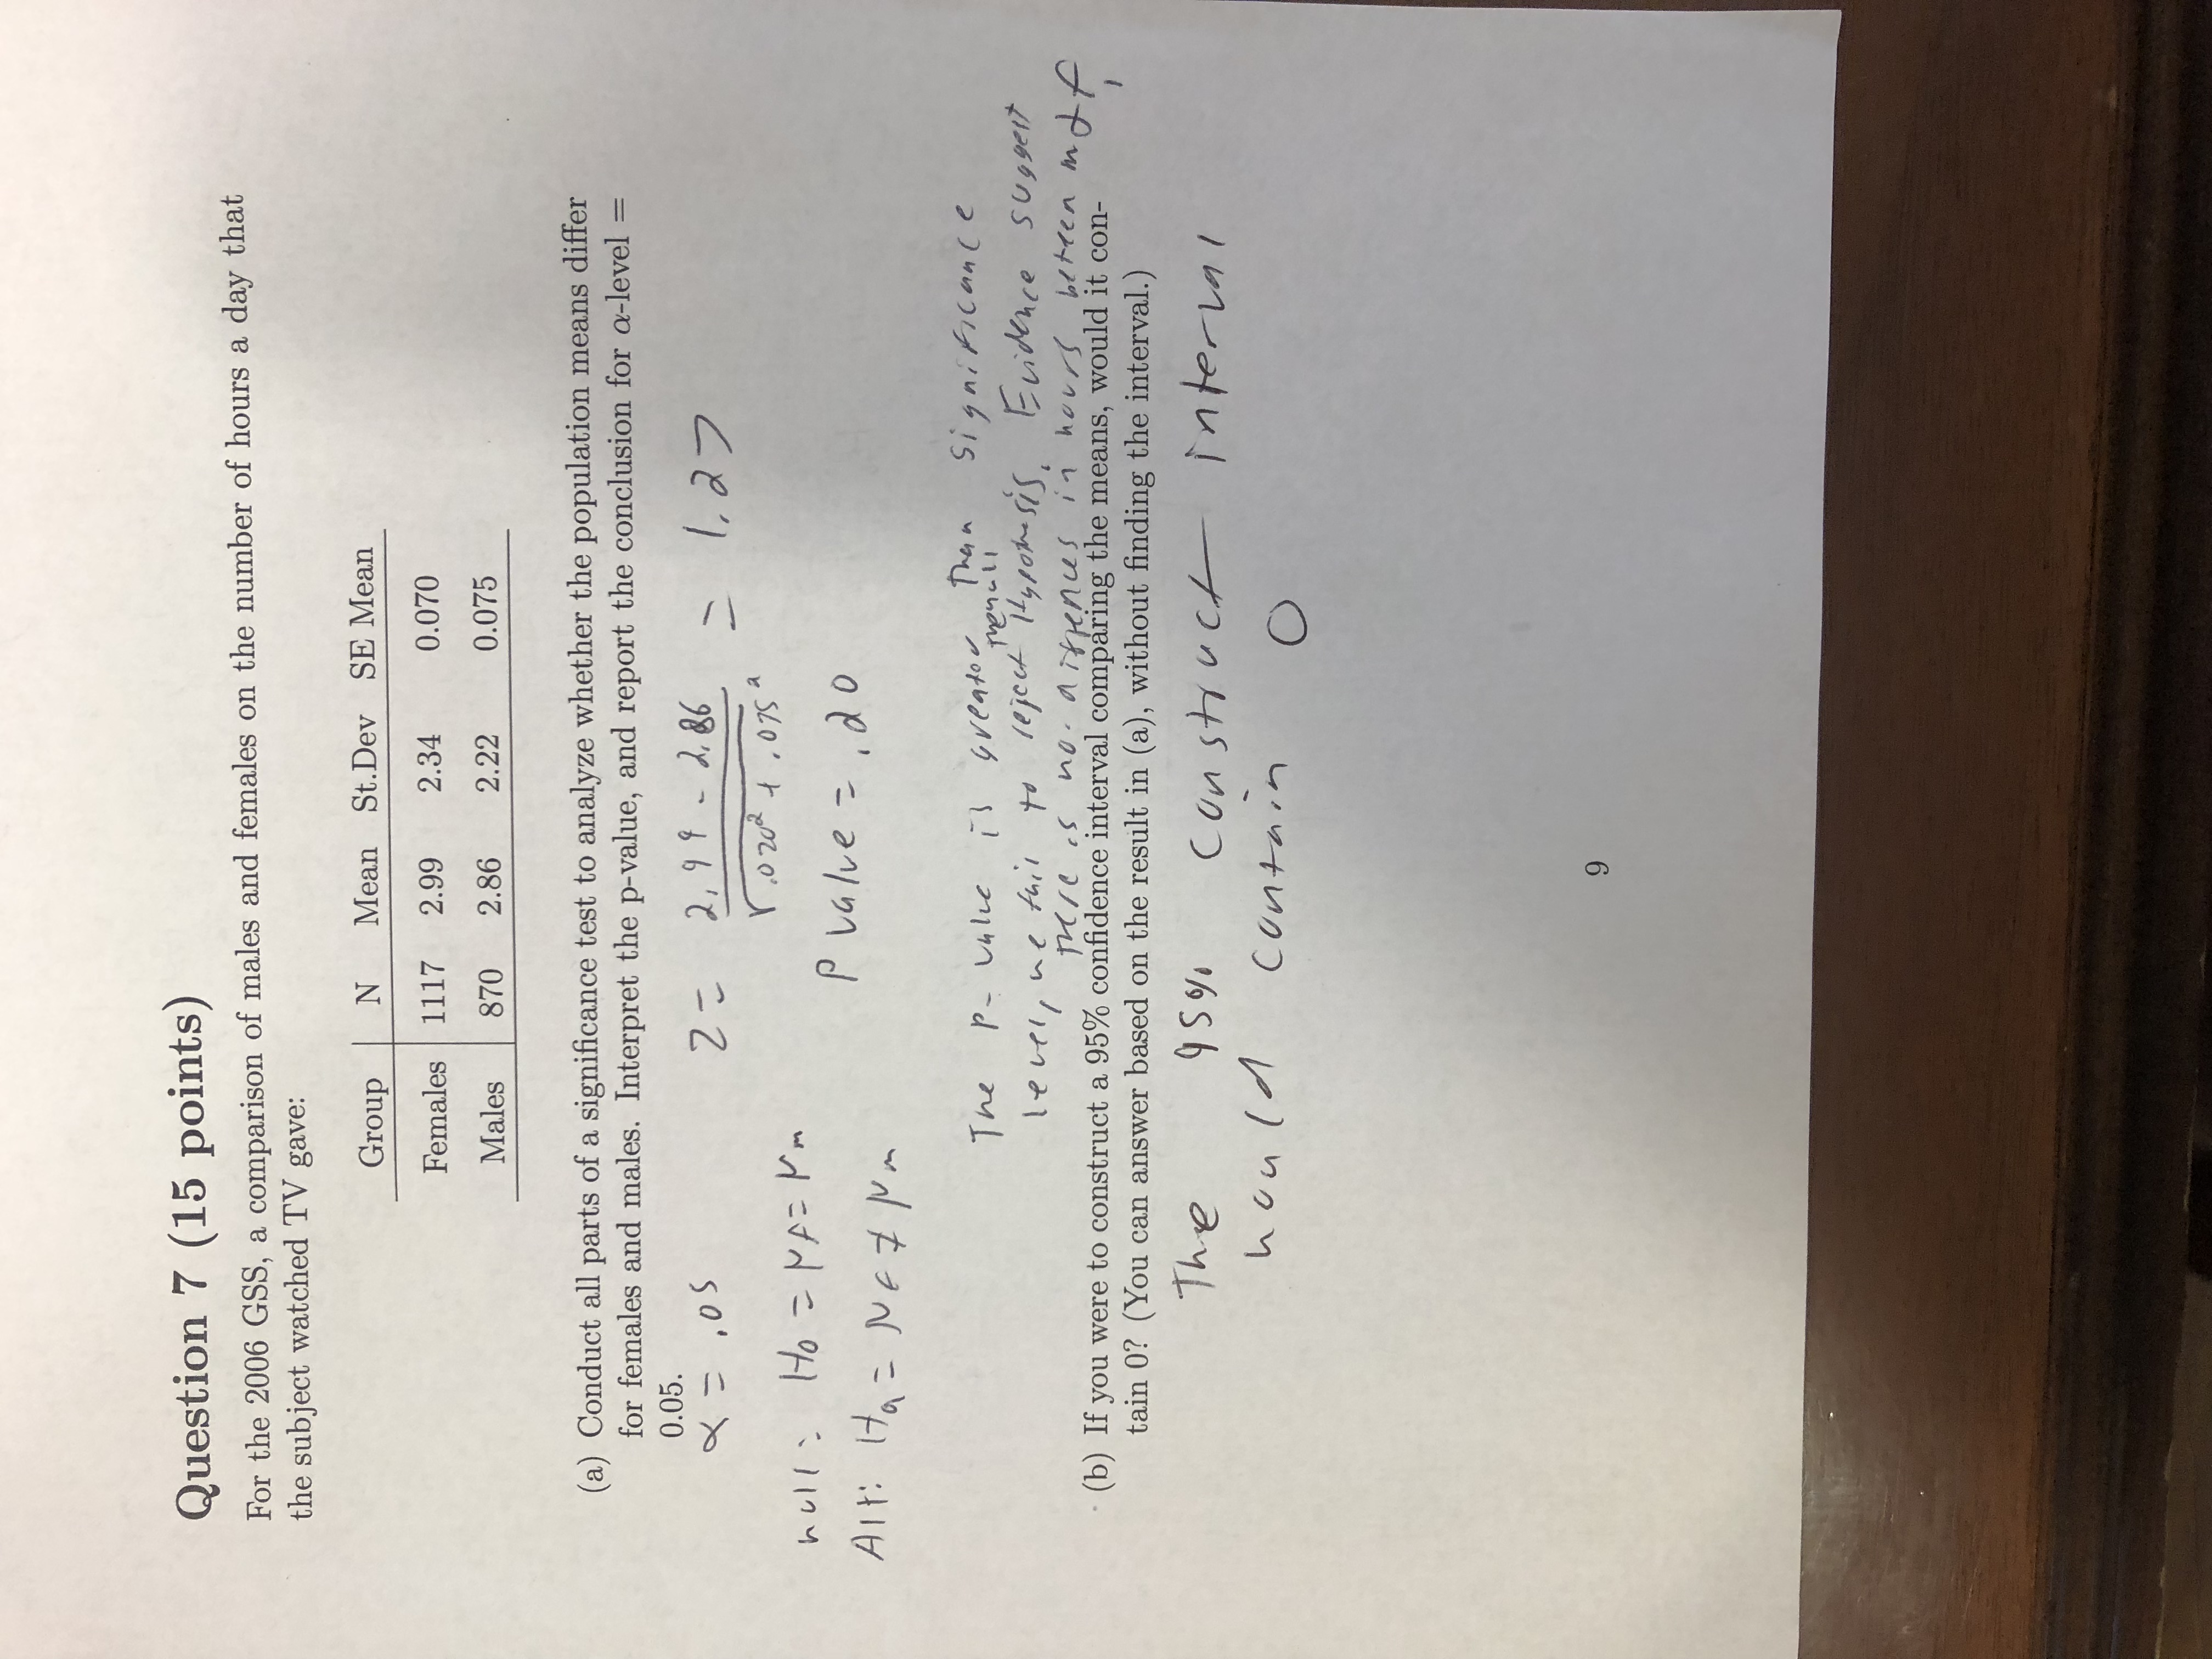 Question 7 (15 points)
For the 2006 GSS, a comparison of males and females on the number of hours a day that
the subject watched TV gave:
Group N Mean St.Dev SE Mean
Females 1117 2.99 2.34 0.070
Males 870 2.86 2.22 0.075
(a) Conduct all parts of a significance test to analyze whether the population means differ
for females and males. Interpret the p-value, and report the conclusion for α-level =
0.05.
α = .05
Z = 2.99 - 2.86 / √.070² + .075² = 1.27
null: H0 = μf = μm
Alt: Ha = μf ≠ μm
P value = .20
The p-value is greator than significance
level, we fail to reject the null Hypothesis. Evidence suggest
there is no differences in hours between m & f
(b) If you were to construct a 95% confidence interval comparing the means, would it con-
tain 0? (You can answer based on the result in (a), without finding the interval.)
The 95% construct interval
would contain 0
9